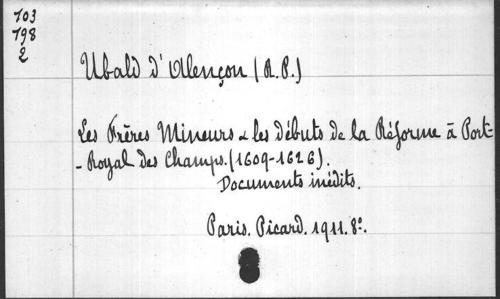 703
798
2
Ubald d'Alençon (R.P.)
Les Frères Mineurs & les débuts de la Réforme à Port-
-Royal des Champs. (1609-1626).
Documents inédits.
Paris. Picard. 1911. 8º.